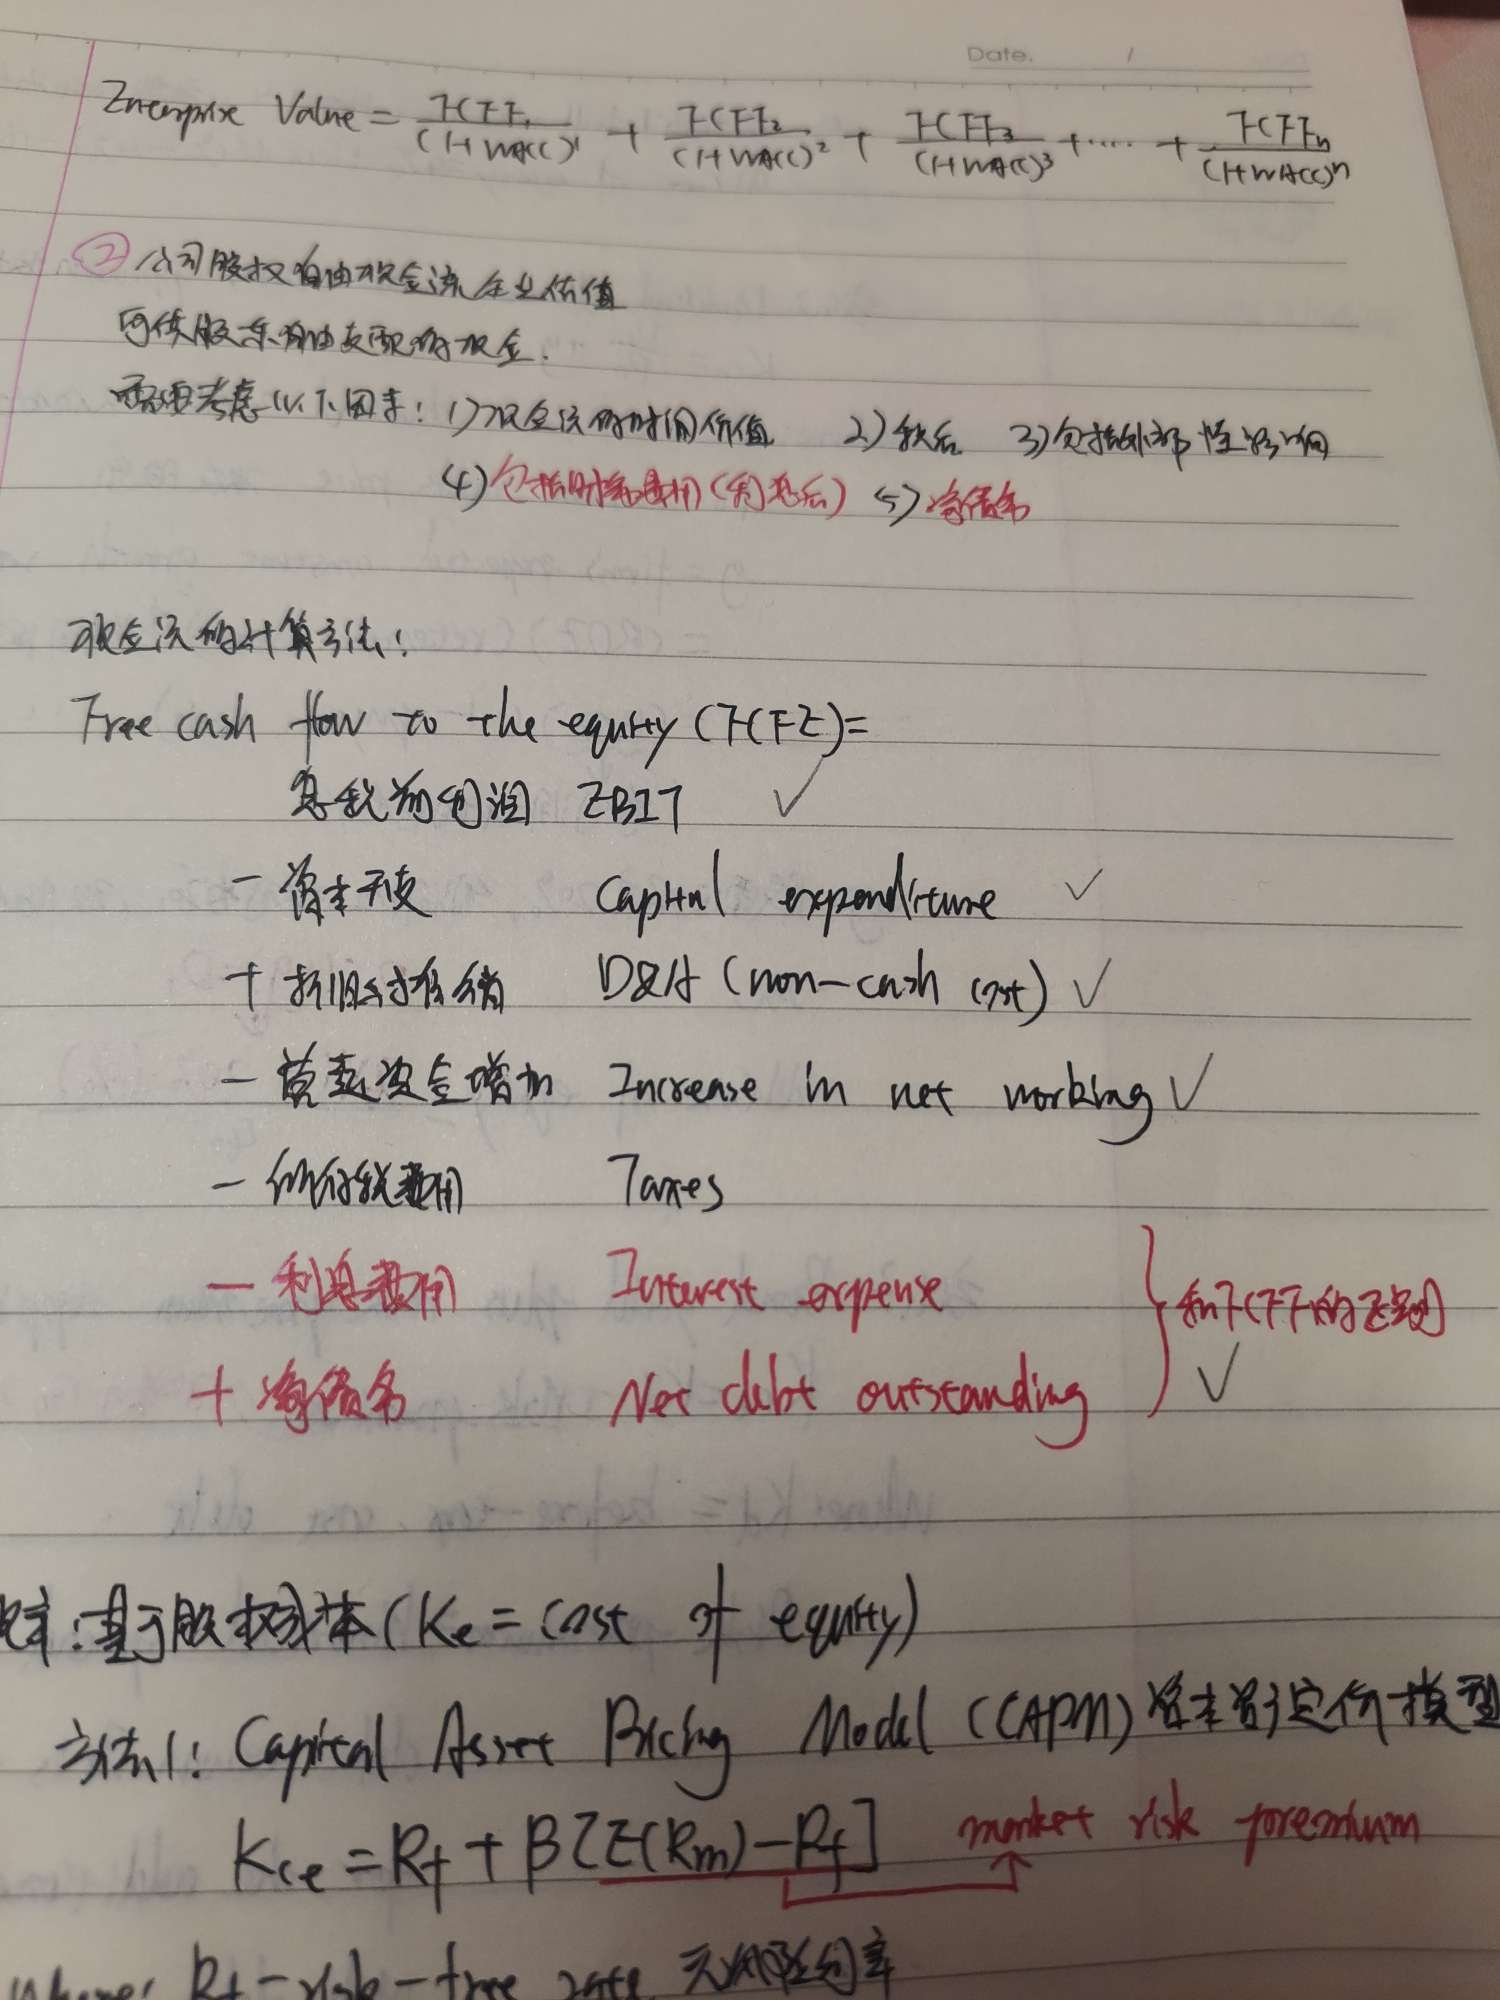 Date. /
Enterprise Value = FCFF₁/(1+WACC)¹ + FCFF₂/(1+WACC)² + FCFF₃/(1+WACC)³ + ···· + FCFFn/(1+WACC)ⁿ
② 公司股权自由现金流企业价值
可供股东自由支配的现金.
需要考虑以下因素: 1)现金流的时间价值 2)税后 3)包括外部性影响
4)包括财务费用(利息后) 5)净债务
现金流的计算方法:
Free cash flow to the equity (FCFE)=
息税前利润 EBIT ✓
- 资本开支 Capital expenditure ✓
+ 折旧与摊销 D&A (non-cash cost) ✓
- 营运资金增加 Increase in net working ✓
- 所付税费用 Taxes
- 利息费用 Interest expense
和FCFF的区别
+ 净债务 Net debt outstanding ✓
率:基于股权成本(Ke = cost of equity)
方法1: Capital Asset Pricing Model (CAPM) 资本资产定价模型
Kce = Rf + β[E(Rm) - Rf] market risk premium
Where: Rf - risk-free rate 无风险利率